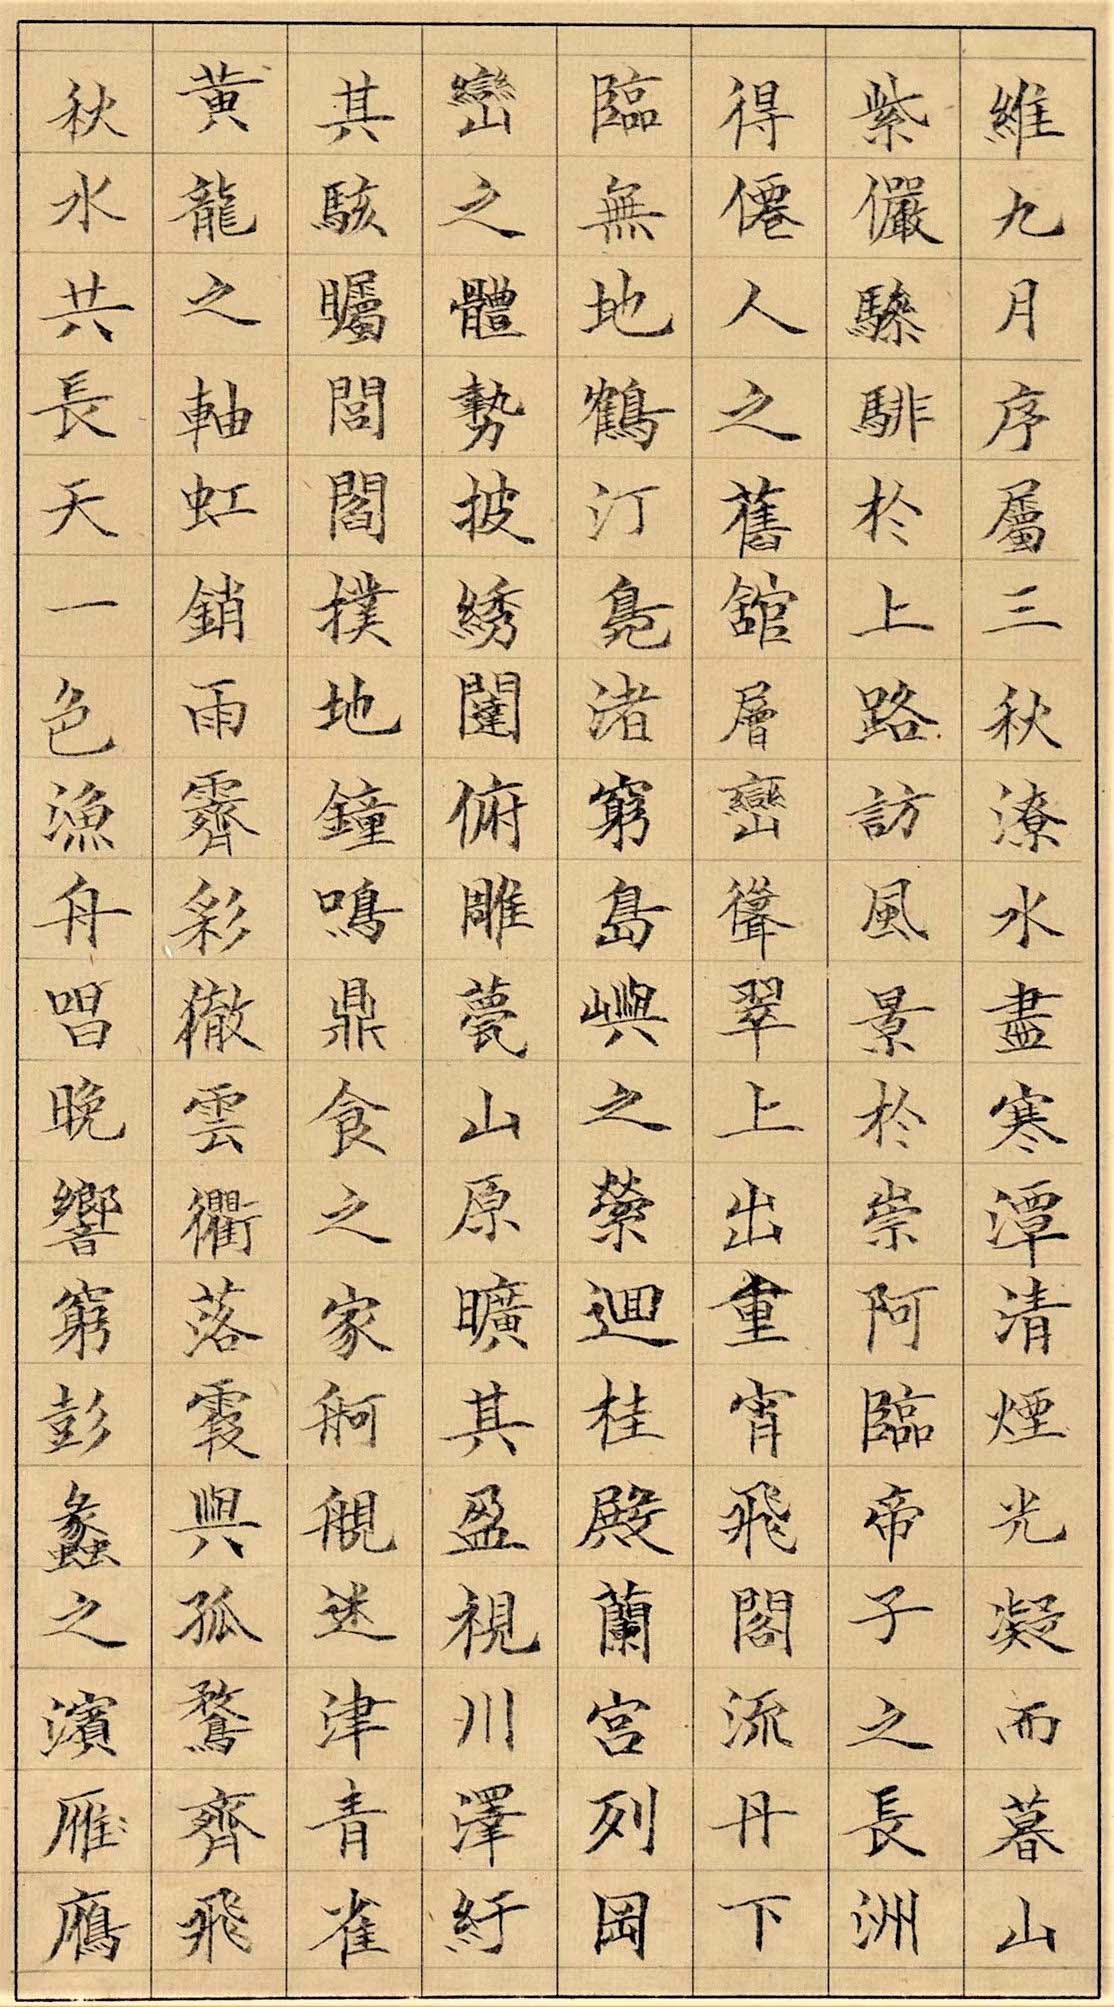 維九月序屬三秋潦水盡寒潭清煙光凝而暮山
紫儼驂騑於上路訪風景於崇阿臨帝子之長洲
得僊人之舊舘層巒聳翠上出重宵飛閣流丹下
臨無地鶴汀鳧渚窮島嶼之縈迴桂殿蘭宮列岡
巒之體勢披綉闥俯雕甍山原曠其盈視川澤紆
其駭矚閭閻撲地鐘鳴鼎食之家舸舰迷津青雀
黃龍之軸虹銷雨霽彩徹雲衢落霞與孤鶩齊飛
秋水共長天一色漁舟唱晚響窮彭蠡之濱雁鴈